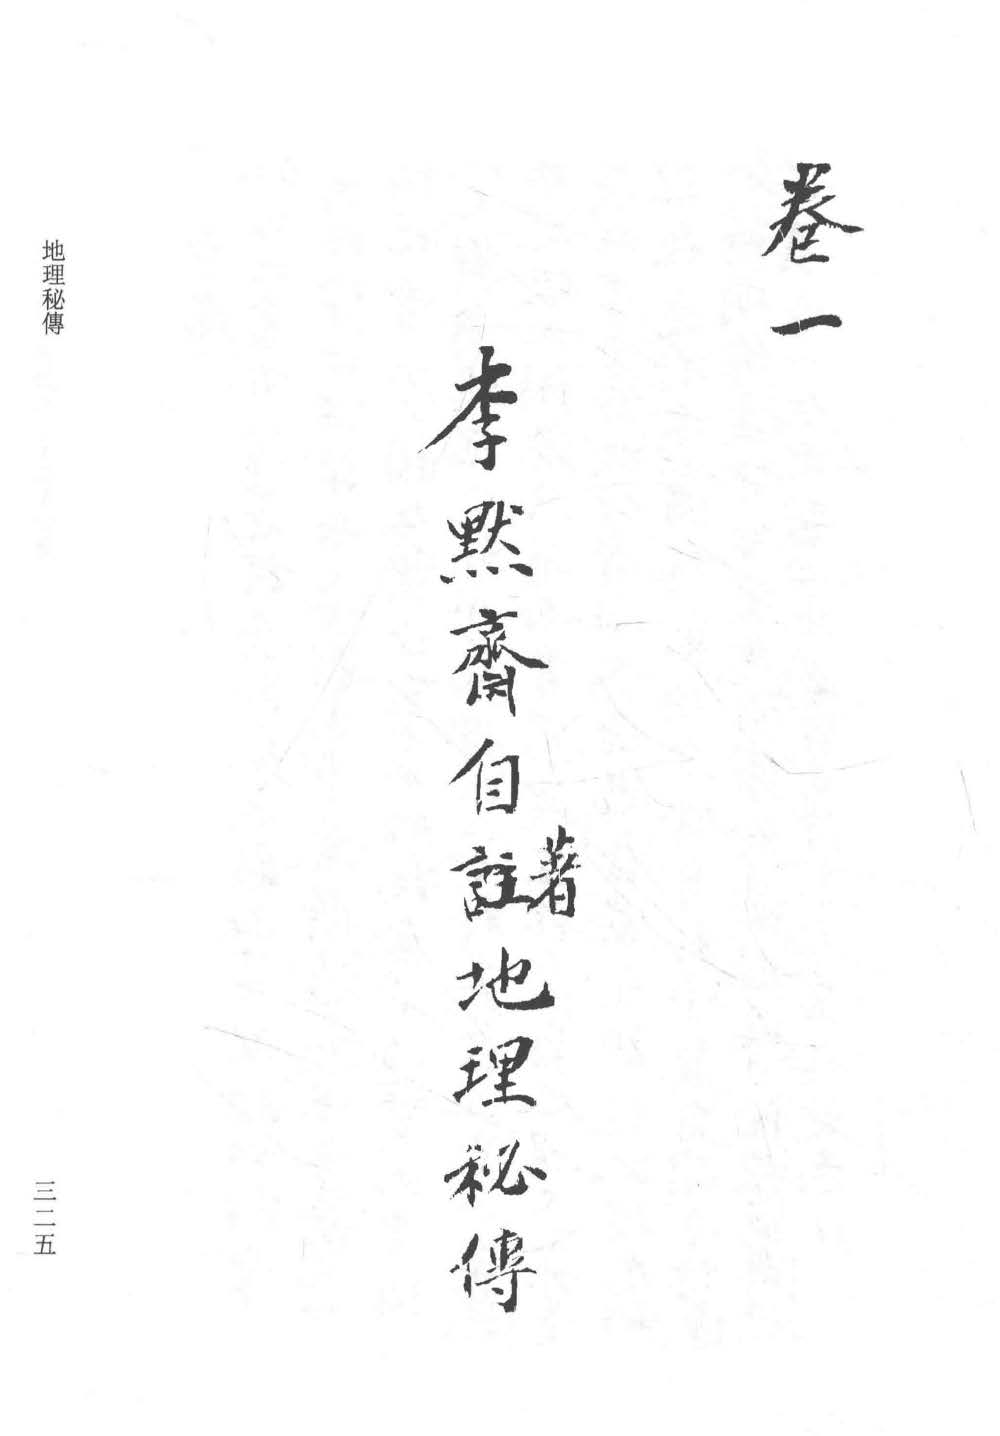 卷一
李默齋自註著地理秘傳
地理秘傳
三二五